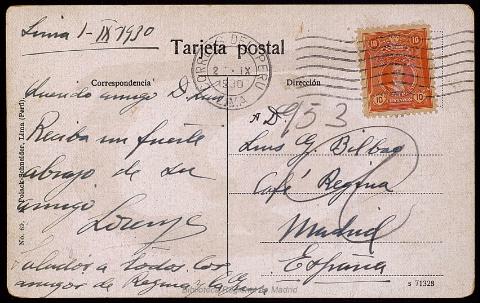 Lima 1-IX 1930
Tarjeta postal
CORREOS DEL PERU
2 IX
1930
LIMA
10 10
10 CENTAVOS 10
Correspondencia
Dirección
Querido amigo D. Luis
Reciba un fuerte
abrazo de su
amigo
Lorenzo
Saludos a todos los
amigos de Regina
A D.
953
Luis G. Bilbao
Café Regina
Madrid
España
No. 69. Polack-Schneider, Lima (Perú)
s 71328
Biblioteca Regional de Madrid